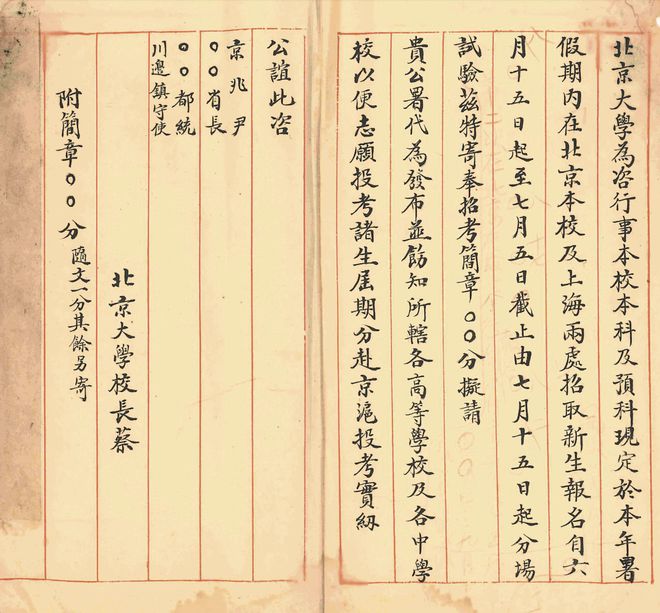 北京大學為咨行事本校本科及預科現定於本年署
假期內在北京本校及上海兩處招取新生報名自六
月十五日起至七月五日截止由七月十五日起分場
試驗茲特寄奉招考簡章〇〇分擬請
貴公署代為發布並飭知所轄各高等學校及各中學
校以便志願投考諸生屆期分赴京滬投考實紉
公誼此咨
京兆尹
〇〇省長
〇〇都統
川邊鎮守使
北京大學校長蔡
附簡章〇〇分 隨文一分其餘另寄